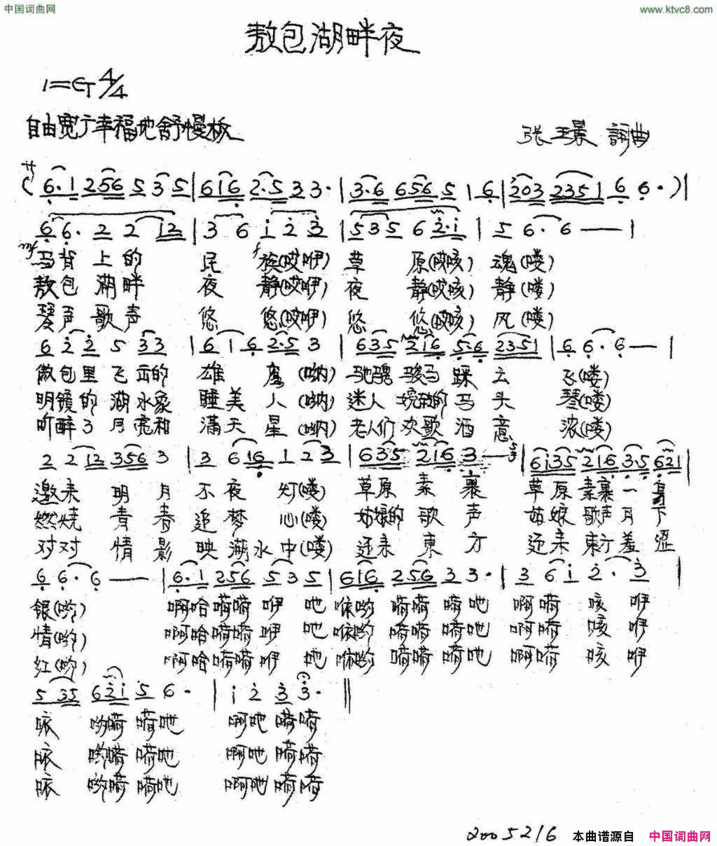 中国词曲网
www.ktvc8.com
敖包湖畔夜
1=G 4/4
自由宽广幸福地 舒慢板
张玉景 詞曲
(6·1 256 5 3 5 | 616 2·5 3 3· | 3·6 656 5 1 6 | 203 2351 6 6·)|
6 6· 2 2 12 | 3 6 i 2 3 | 5 3 5 6 2·i | 5 6· 6 — |
mf f
马背上的 民族(哎咿) 草原(哎咳)魂(喽)
敖包湖畔 夜静(哎咿) 夜静(哎咳)静(喽)
琴声歌声 悠悠(哎咿) 悠悠(哎咳)风(喽)
6 2 2 5 3 3 | 6 1 6 2·5 3 | 635 216 5·6 2351 | 6 6· 6 — |
敖包里飞出的 雄鹰(哟) 驰骋骏马踩云飞(喽)
明镜的湖水象 睡美人(呐) 迷人 的马头琴(喽)
听醉了月亮和 满天星(呐) 老人们次歌酒意浓(喽)
2 2 12 356 3 | 3 6 16 1 2 3 | 635 216 3 — | 6135 216 3·5 621 |
邀来明月不夜灯(喽) 草原素裹 草原素裹一身
燃烧青春追梦心(喽) 姑娘的歌声 姑娘歌声月下
对对情影映湖水中(喽) 还来東方 还来東方羞涩
6 6· 6 — | 6·1 256 5 3 5 | 616 256 3 3· | 3 6 i 2·3 |
银(哟) 啊哈嗬嗬咿 吔 咴哟嗬嗬嗬吔 啊嗬咳咿
情(哟) 啊哈嗬嗬咿 吔 咴哟嗬嗬嗬吔 啊嗬咳咿
红(哟) 啊哈嗬嗬咿 吔 咴哟嗬嗬嗬吔 啊嗬咳咿
5 35 62i 5 6· | i 2 3 3· ‖
咴 哟嗬嗬吔 啊吔嗬嗬
咴 哟嗬嗬吔 啊吔嗬嗬
咴 哟嗬嗬吔 啊吔嗬嗬
2005216
本曲谱源自 中国词曲网